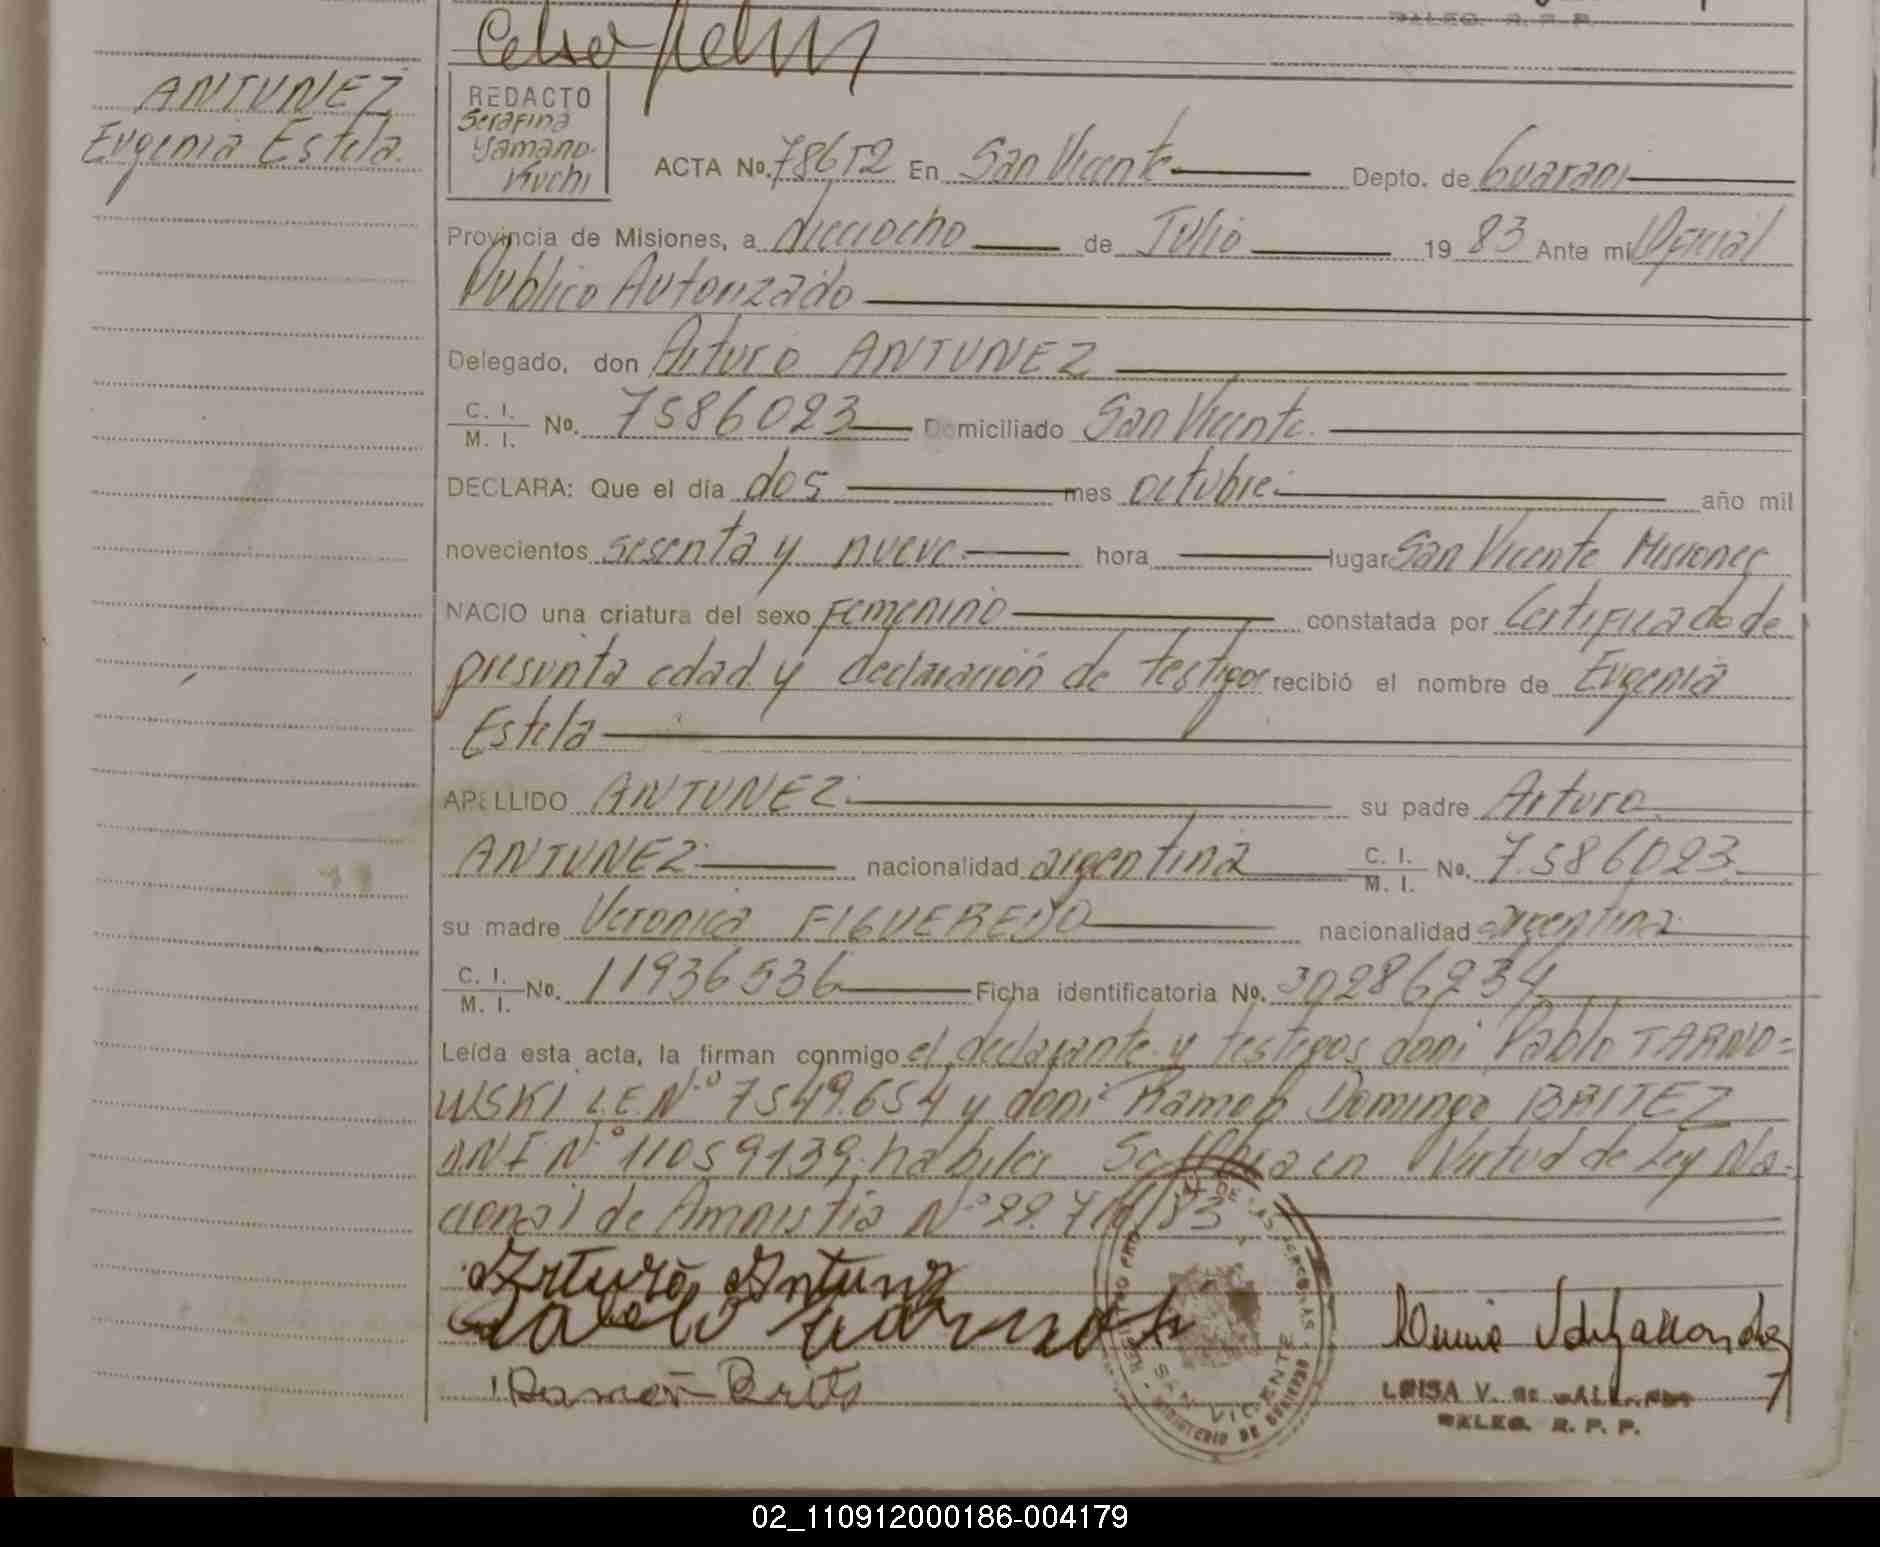 DALEG. R. P. P.
ANTUNEZ
Eugenia Estela.
REDACTO
Serafina
Yamano-
Kuchi
ACTA No. 78652 En San Vicente Depto. de Guarani
Provincia de Misiones, a dieciocho de Julio 19 83 Ante mi Oficial
Publico Autorizado
Delegado, don Arturo ANTUNEZ
C. I. / M. I. No. 7586023 Domiciliado San Vicente.
DECLARA: Que el día dos mes octubre. año mil
novecientos sesenta y nueve. hora lugar San Vicente Misiones
NACIO una criatura del sexo Femenino constatada por Certificado de
presunta edad y declaración de testigos recibió el nombre de Eugenia
Estela
APELLIDO ANTUNEZ. su padre Arturo
ANTUNEZ. nacionalidad argentina C. I. / M. I. No. 7.586023.
su madre Veronica FIGUEREDO nacionalidad argentina
C. I. / M. I. No. 11936536 Ficha identificatoria No. 30286234
Leída esta acta, la firman conmigo el declarante y testigos don: Pablo TARNO=
WSKI L.E.Nº 7549.654 y don: Ramon Domingo BRITEZ
D.N.I Nº 11059139. habiles Se labra en Virtud de Ley Na-
cional de Amnistia Nº 22.7 /83
Arturo Antunz
Ramon Brites
SAN VICENTE
MINISTERIO DE GOBIERNO
LUISA V. DE
DELEG. R. P. P.
02_110912000186-004179